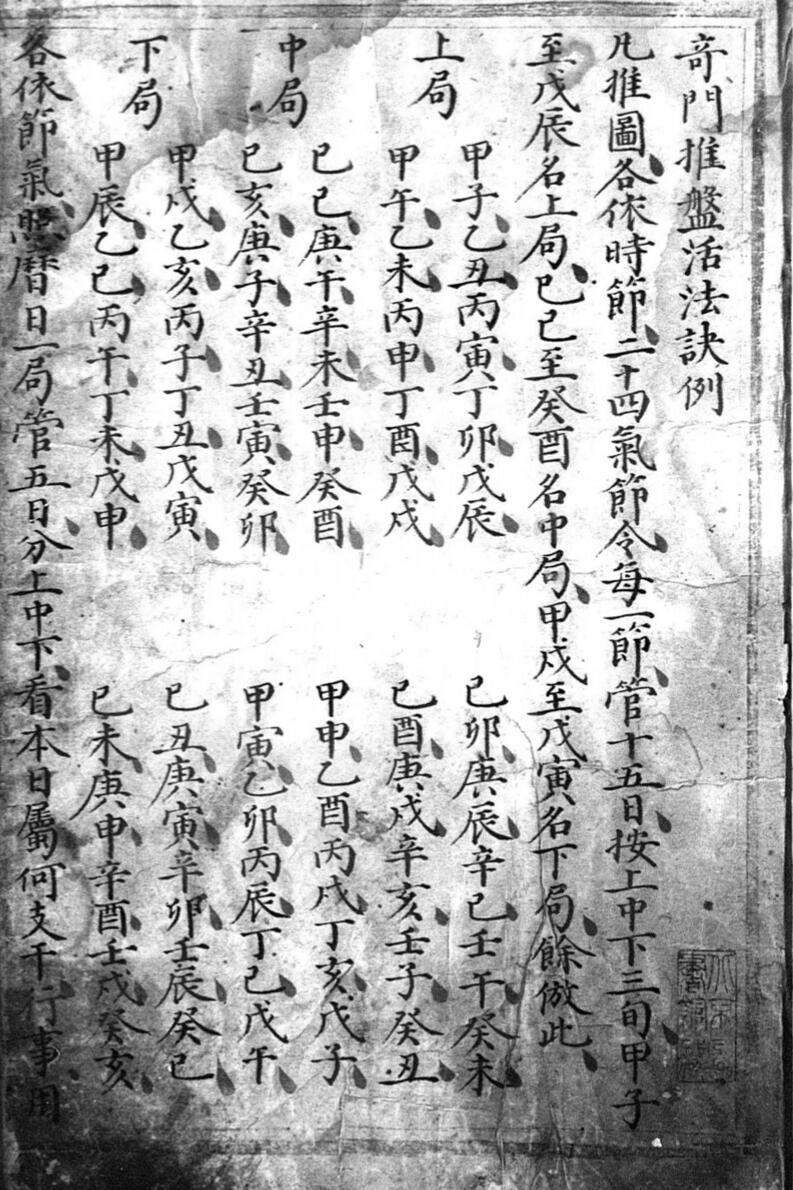 奇門推盤活法訣例
凡推圖各依時節二十四氣節令每一節管十五日按上中下三旬甲子
至戊辰名上局己巳至癸酉名中局甲戌至戊寅名下局餘倣此
上局
甲子乙丑丙寅丁卯戊辰
己卯庚辰辛巳壬午癸未
甲午乙未丙申丁酉戊戌
己酉庚戌辛亥壬子癸丑
中局
己巳庚午辛未壬申癸酉
甲申乙酉丙戌丁亥戊子
己亥庚子辛丑壬寅癸卯
甲寅乙卯丙辰丁巳戊午
下局
甲戌乙亥丙子丁丑戊寅
己丑庚寅辛卯壬辰癸巳
甲辰乙巳丙午丁未戊申
己未庚申辛酉壬戌癸亥
各依節氣照曆日一局管五日分上中下看本日屬何支干行事用